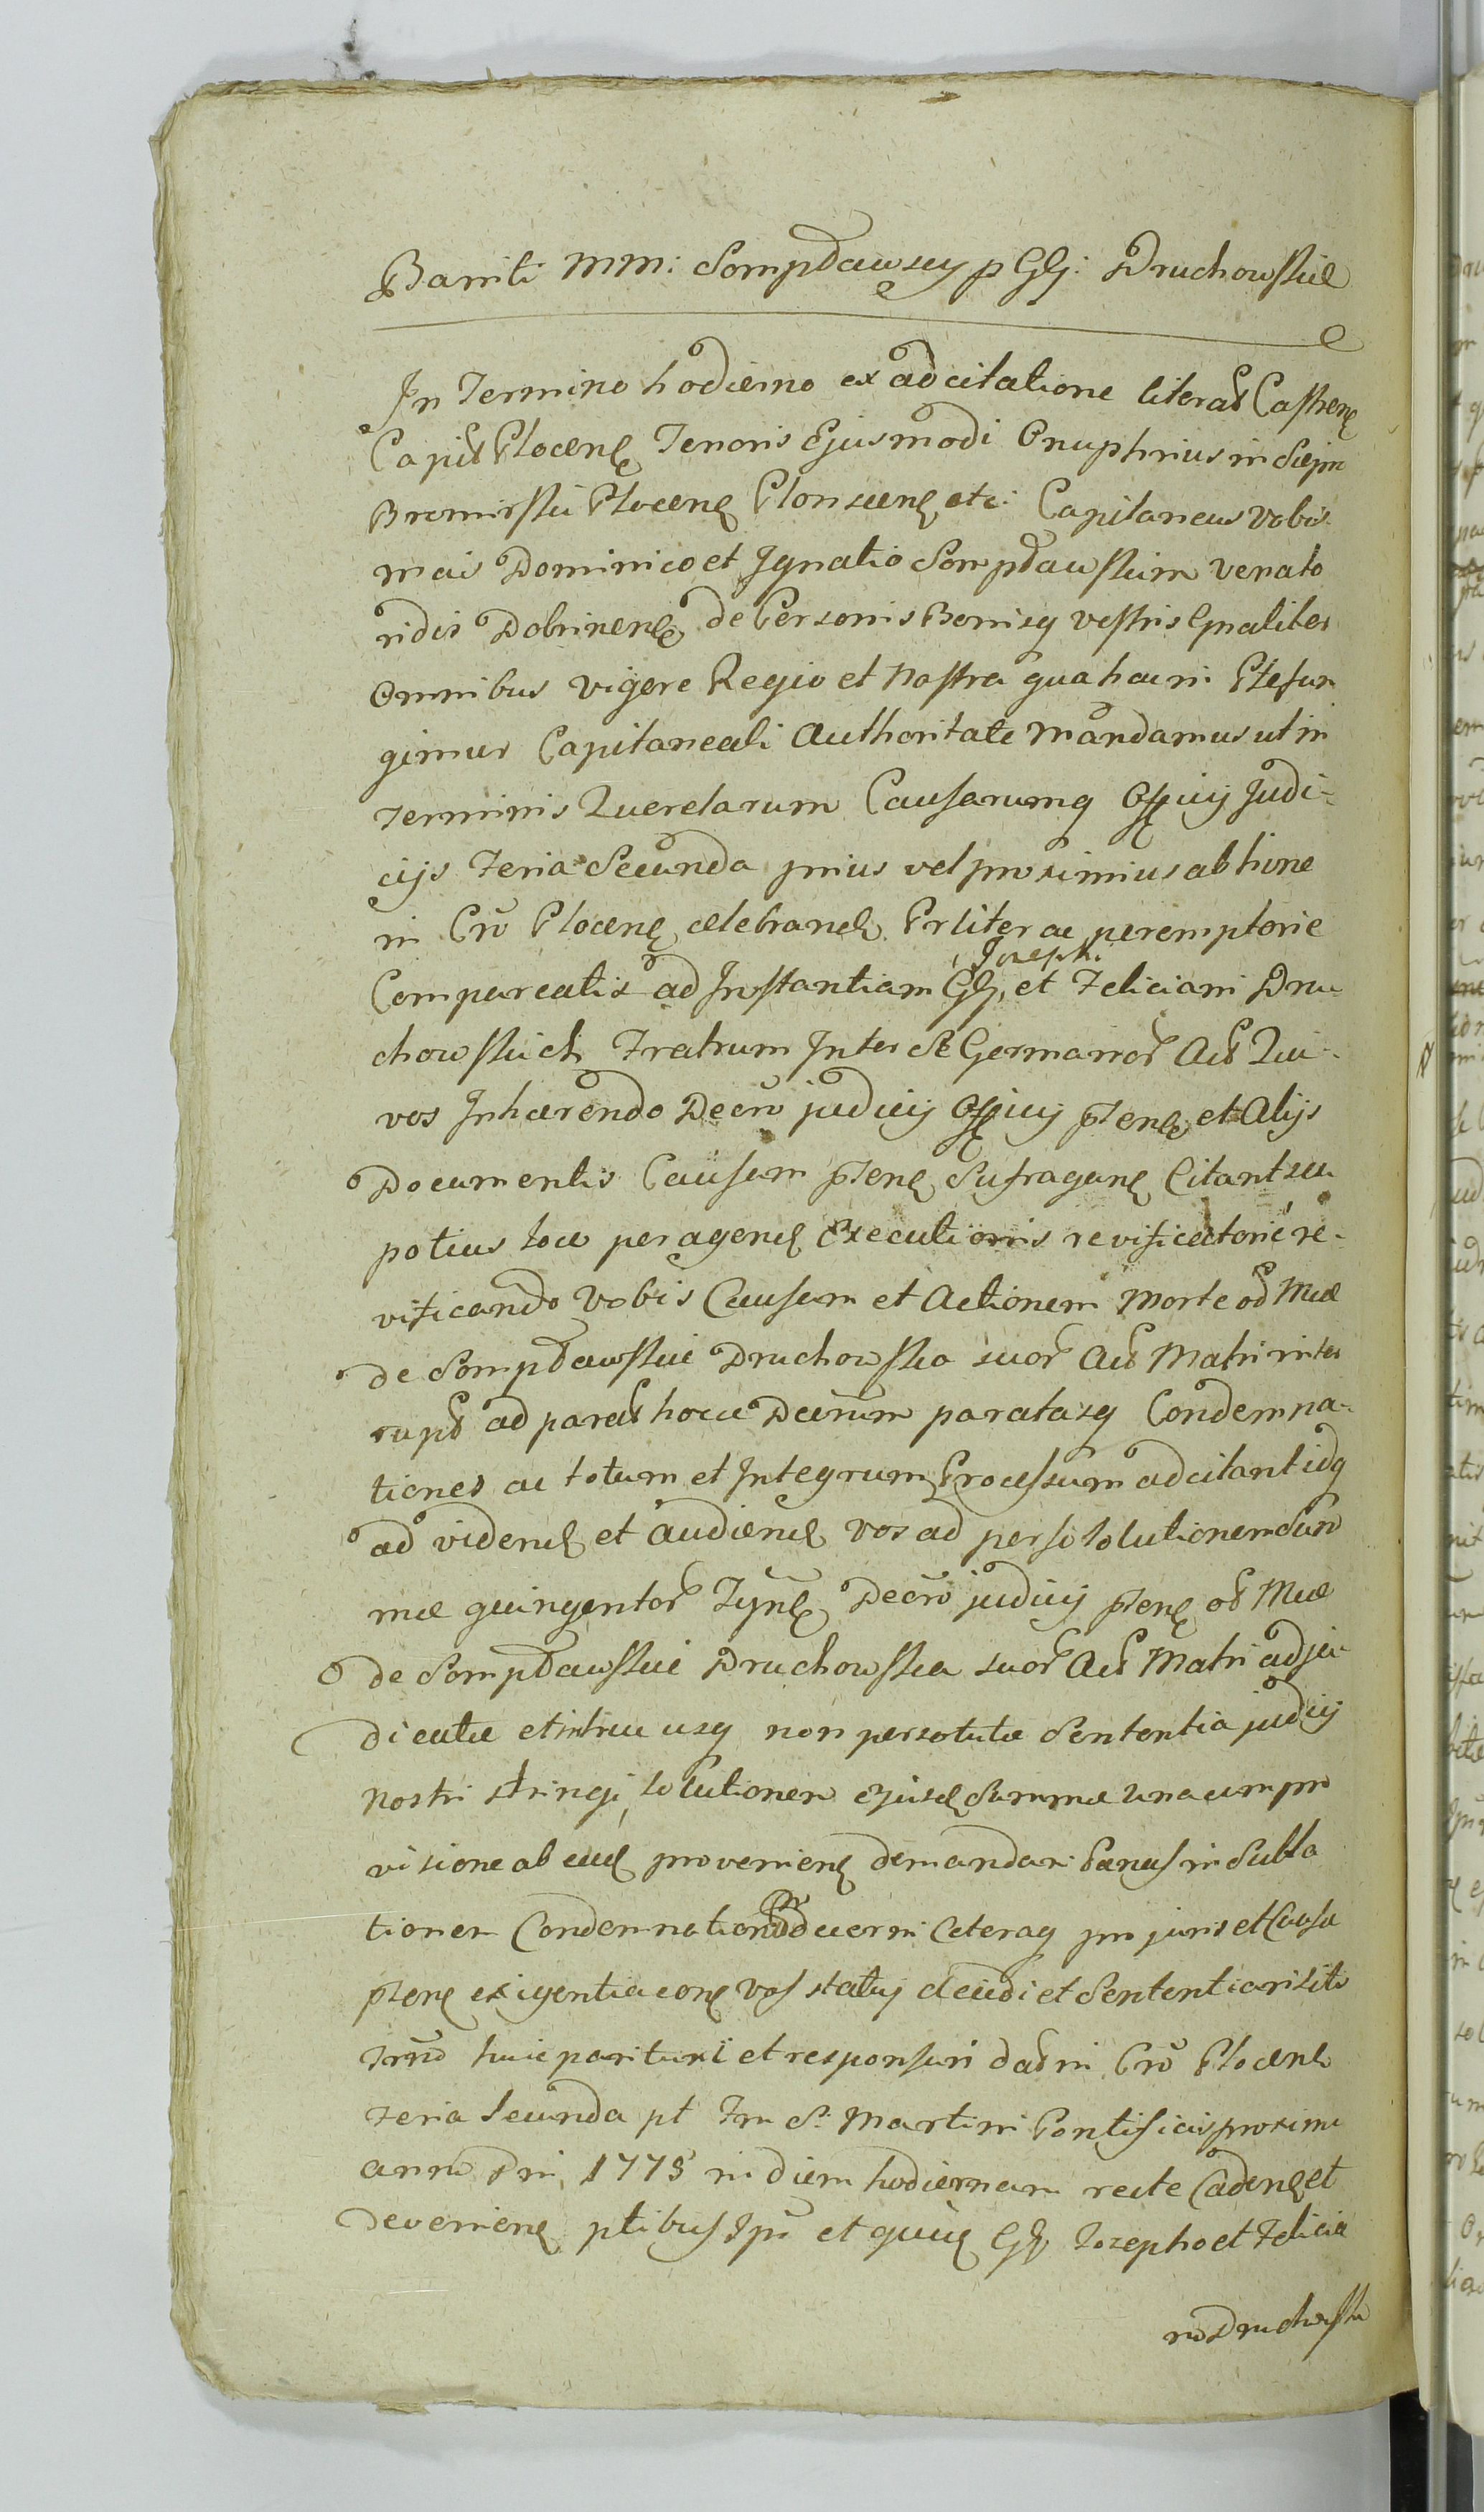 Baniti MM: Sompdawscy p GG: Druchowskie
In Termino hodierno ex adcitatione literar Castren
Capit Plocen Tenoris Ejusmodi Onuphrius in Siepin
Bromirski Plocen Plonscen etc: Capitaneus Vobis
mcis Dominico et Ignatio Sompdawskim venato
ridis Dobrinen de Personis Bonisq vestris Gnaliter
Omnibus vigore Regio et Nostra qua hac in Pte fun
gimur Capitaneali Authoritate Mandamus ut in
Terminis Querelarum Causarumq Officij Judi-
cijs Feria Secunda prius vel proximius ab hinc
in Cro Plocen celebran Prliter ac peremptorie
Compareatis ad Instantiam GG, Josephi et Feliciani Dru
chowskich Fratrum Inter Se Germanor Act Qui
vos Inhærendo Decro judicij Officij pten et Alijs
Documentis Causam pten Sufragan Citant seu
potius loco peragen Executionis revificatorie re-
vificando Vobis Causam et Actionem Morte od Mcæ
de Sompdawskie Druchowska suor Act Matri inter
rupt ad parat hocce Decrum paratasq Condemna-
tiones ac totum et Integrum Processum adcitant idq
ad viden et audien vos ad persolutionem Sum
mæ quingentor Tynf Decro judicij pten od Mcæ
de Sompdawskie Druchowska suor Act Matri adju-
dicatæ et intra usq non persolutæ Sententia judicij
Nostri stringi, solutionem ejusd Summæ una cum pro
visione ab ead provenien demandari Pænas in Subla
tionem Condemnation decerni Ceteraq pro juris et Causa
pten exigentia con vos statuj decidi et Sententiari Sitis
Trmo huic parituri et responsuri dat in Cro Plocen
Feria secunda pt Fm S: Martini Pontificis proxima
anno Dni, 1775 in diem hodiernam recte Caden et
devenien ptibus Ipis et quid GG Josepho et Felicia
no Druchowski